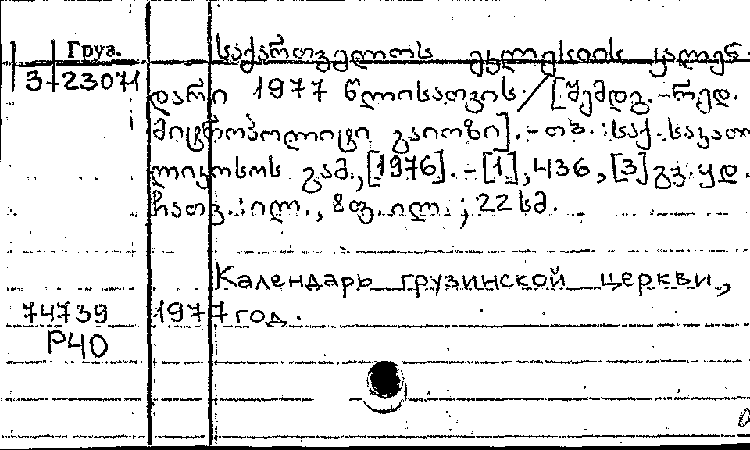 Груз.
საქართველოს ეკლესიის კალენ
3-23071
დარი 1977 წლისათვის. [შემდგ.-რედ.
მიტროპოლიტი გაიოზი].-თბ.: საქ. საკათო
ლიკოსოს გამ., [1976].-[1], 436, [3] გვ. ყდ.
ჩათვ.: ილ., 8 ფ. ილ.; 22 სმ.
Календарь грузинской церкви,
74739
1977 год.
Р40